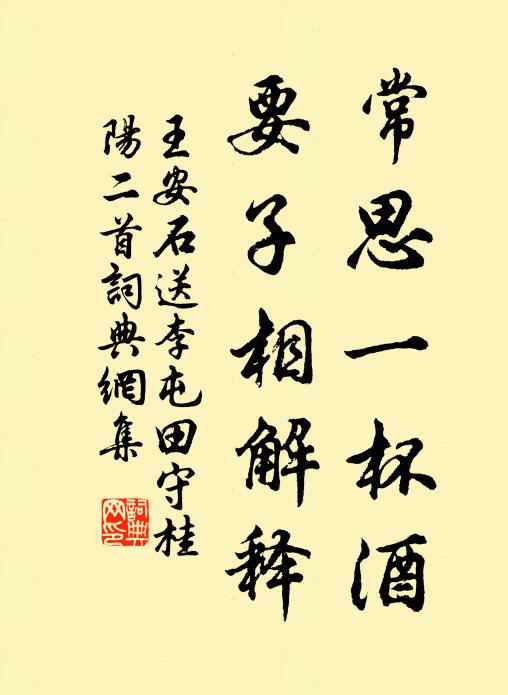 常思一杯酒
要子相解释
王安石送李屯田守桂
陽二首詞典網集
詞典网印